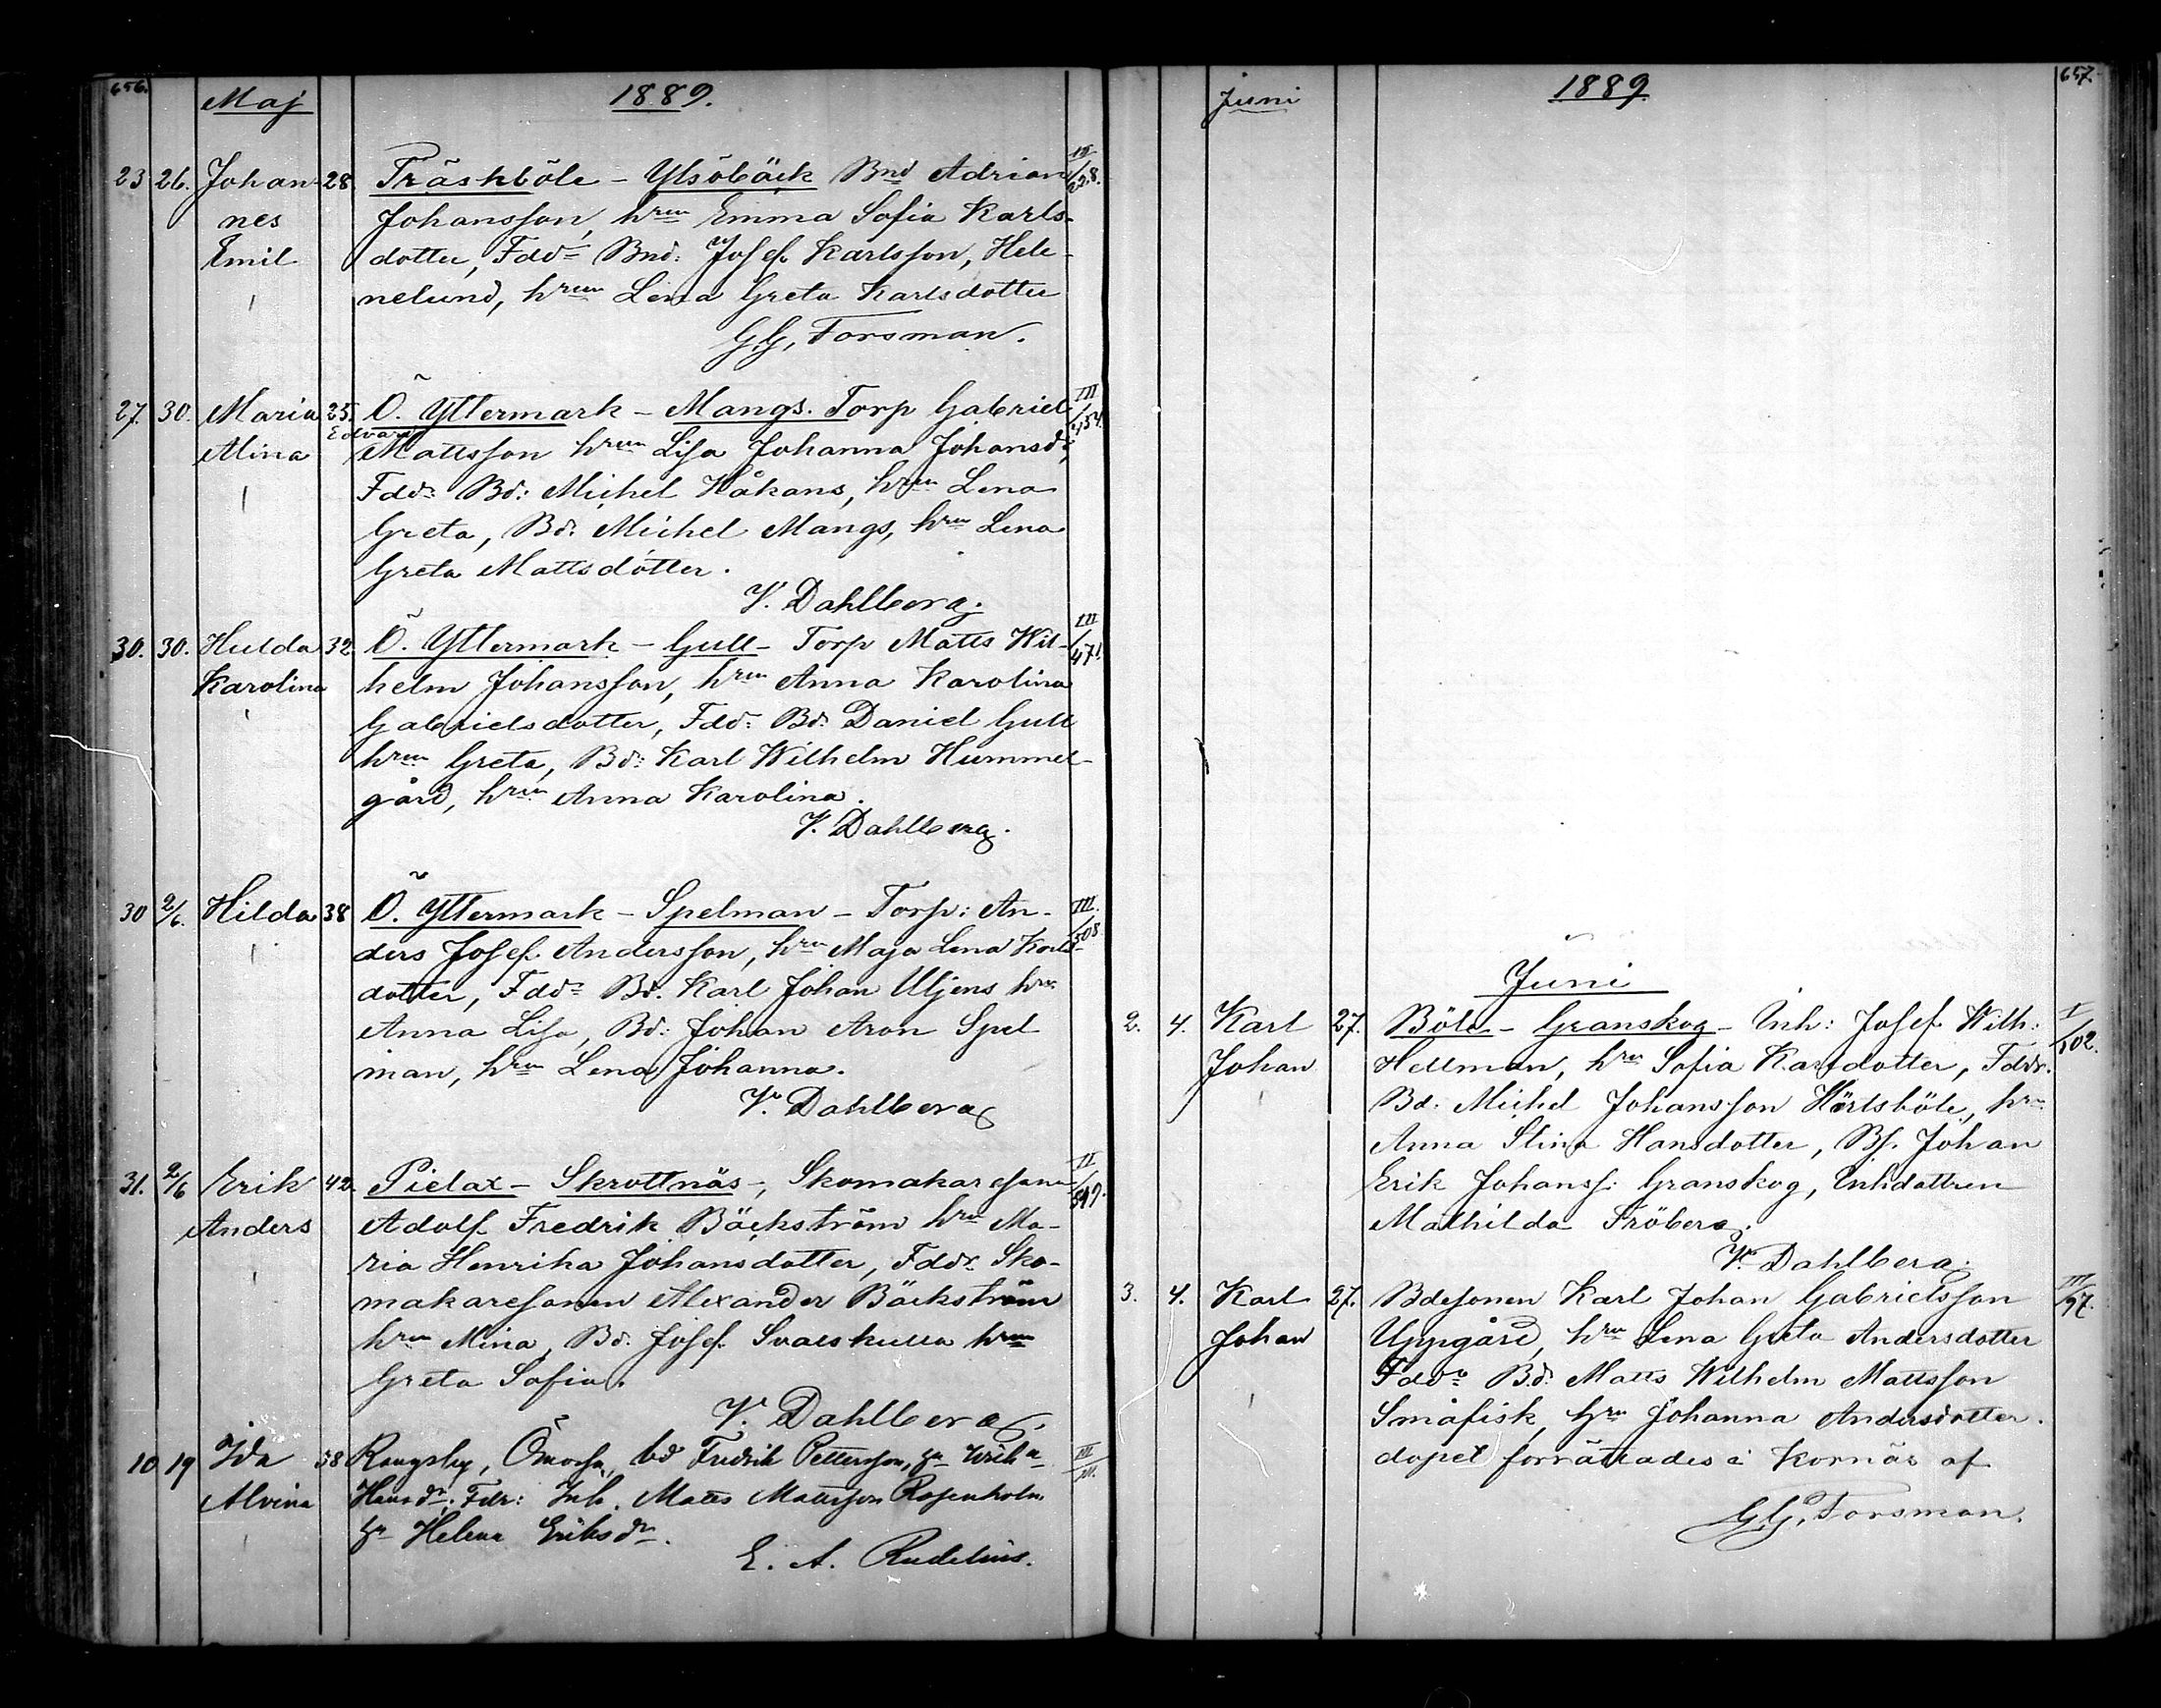 656.
Maj 1889.
23 26. Johan- 28. Träskböle - Ylsöbäck Bnd Adrian III/228.
nes Johansson, hrun Emma Sofia Karls-
Emil dotter, Fddr Bnd: Josef Karlsson, Hele-
nelund, hrun Lena Greta Karlsdotter
G.G. Forsman.
27. 30. Maria 25. Ö. Yttermark - Mangs. Torp Gabriel III/454.
Edvard
Alina Mattsson hrun Lisa Johanna Johansdr,
Fddr Bd: Michel Håkans, hrun Lena
Greta, Bd: Michel Mangs, hrun Lena
Greta Mattsdotter.
V. Dahlberg.
30. 30. Hulda 32. Ö. Yttermark - Gull - Torp Matts Wil- III/471.
Karolina helm Johansson, hrun Anna Karolina
Gabrielsdotter, Fddr: Bd: Daniel Gull
hrun Greta, Bd: Karl Wilhelm Hummel-
gård, hrun Anna Karolina.
V. Dahlberg.
30 2/6. Hilda 38 Ö. Yttermark - Spelman - Torp: An- III./508
ders Josef Andersson, hrun Maja Lena Karls-
dotter, Fddr Bd. Karl Johan Uljens hrun
Anna Lisa, Bd: Johan Aron Spel
man, hrun Lena Johanna.
V. Dahlberg
31. 2/6 Erik 42. Pielax - Skrottnäs -, Skomakaresonen II/519.
Anders Adolf Fredrik Bäckström hrun Ma-
ria Henrika Johansdotter, Fddr. Sko-
makaresonen Alexander Bäckström
hrun Mina, Bd. Josef Svalskulla hrun
Greta Sofia.
V. Dahlberg.
10 19 Ida 38 Rangsby, bd Fredrik Pettersson, III
Alvina Hansdr; Fdr: Inh. Matts Mattsson Rosenholm
Helena Eriksdr.
E. A. Rudelius.
657.
Juni 1889
Juni
2. 4. Karl 27. Böle - Granskog - Inh: Josef Wilh: I/102.
Johan Hellman, hrun Sofia Karlsdotter, Fddr.
Bd. Michel Johansson Härtsböle, hrun
Anna Stina Hansdotter, Bs. Johan
Erik Johanss: Granskog, Inhdottren
Mathilda Fröberg.
V. Dahlberg.
3. 4. Karl 27. Bdesonen Karl Johan Gabrielsson III/97.
Johan Uppgård, hrun Lena Greta Andersdotter
Fddr Bd: Matts Wilhelm Mattsson
Småfisk, hrun Johanna Andersdotter.
dopet förrättades i Kornäs af
G.G. Forsman.